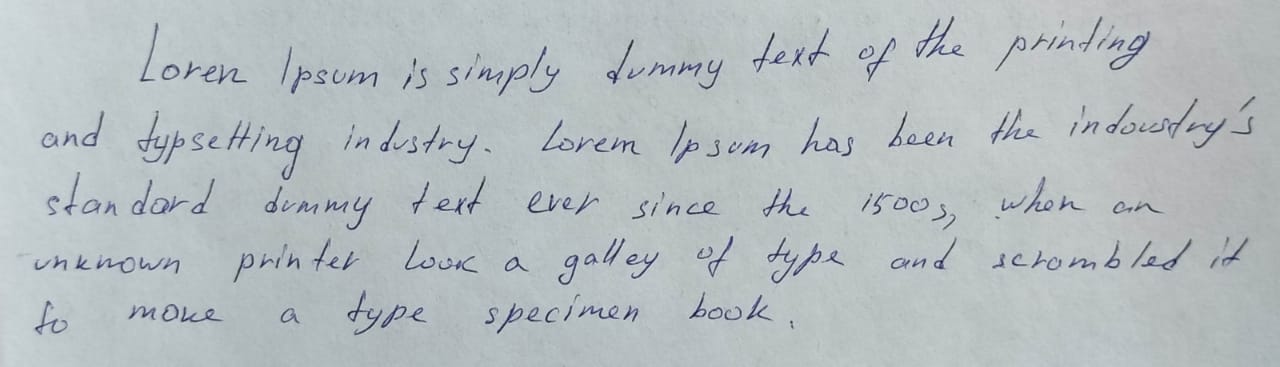 Loren Ipsum is simply dummy text of the printing
and typsetting industry. Lorem Ipsum has been the indoustry's
standard dummy text ever since the 1500s, when an
unknown printer look a galley of type and scrambled it
to make a type specimen book.